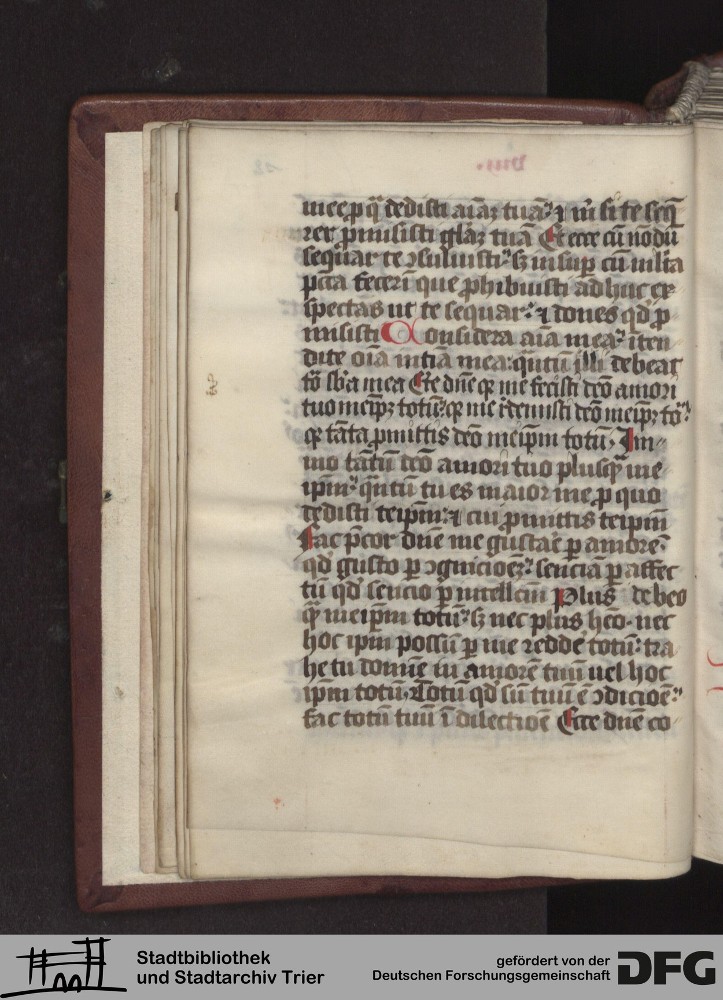 mee p q̄ dedisti aīaʒ tuā · ⁊ nī si te seq̄
rer ꝓmisisti gl̄aʒ tuā Et ecce cū nōdū
sequar te ꝯsuluisti · sʒ insuꝑ cū ml̄ta
pctā fecerī que ꝓhibuisti adhuc ex
spectas ut te sequar · ⁊ dones qd̕ ꝓ
misisti Considera aīa mea · iten
dite oīa īntīa mea · qūtū illi debeat
tō sb̄a mea Cte dn̄e qꝫ me fecisti dēō amori
tuo meipꝫ totū · qꝫ me redemisti dēō meipꝫ tō
qꝫ tāta ꝓmittis dēō meipm̄ totū · Im
mo tātū dēō amori tuo plusqꝫ me
ipm̄ · qūtū tu es maior me ꝓ quo
dedisti teipm̄ · ⁊ cui ꝓmittis teipm̄
Fac p̄cor dn̄e me gustar̄e ꝑ amorē ·
qd̕ gusto ꝑ ꝯgnicioeʒ · senciā ꝑ affec
tū qd̕ sencio ꝑ intellc̄m Plus debeo
qꝫ meipm̄ totū · sʒ nec plus hēo · nec
hoc ipm̄ possū ꝑ me redde̕ totū · tra
he tu domīe in amorē tuū uel hoc
ipm̄ totū · Totū qd̕ sū tuū ē ꝯdicioē ·
fac totū tuū ī dilectioē Ecce dn̄e co
Stadtbibliothek
und Stadtarchiv Trier
gefördert von der
Deutschen Forschungsgemeinschaft
DFG